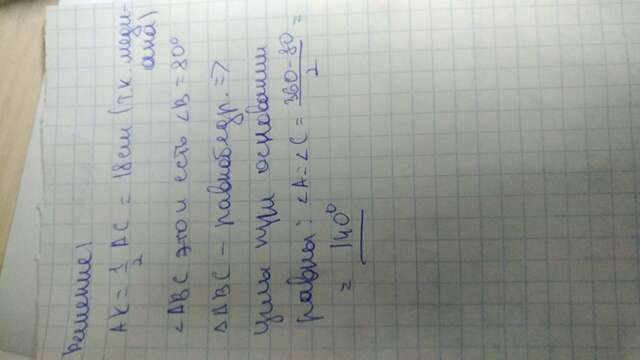 Решение:
AK = 1/2 AC = 18 cm (т.к. меди-
ана)
∠ABC это и есть ∠B = 80°
ΔABC – равнобедр. =>
углы при основании
равны: ∠A = ∠C = 360-80/2 =
= 140°